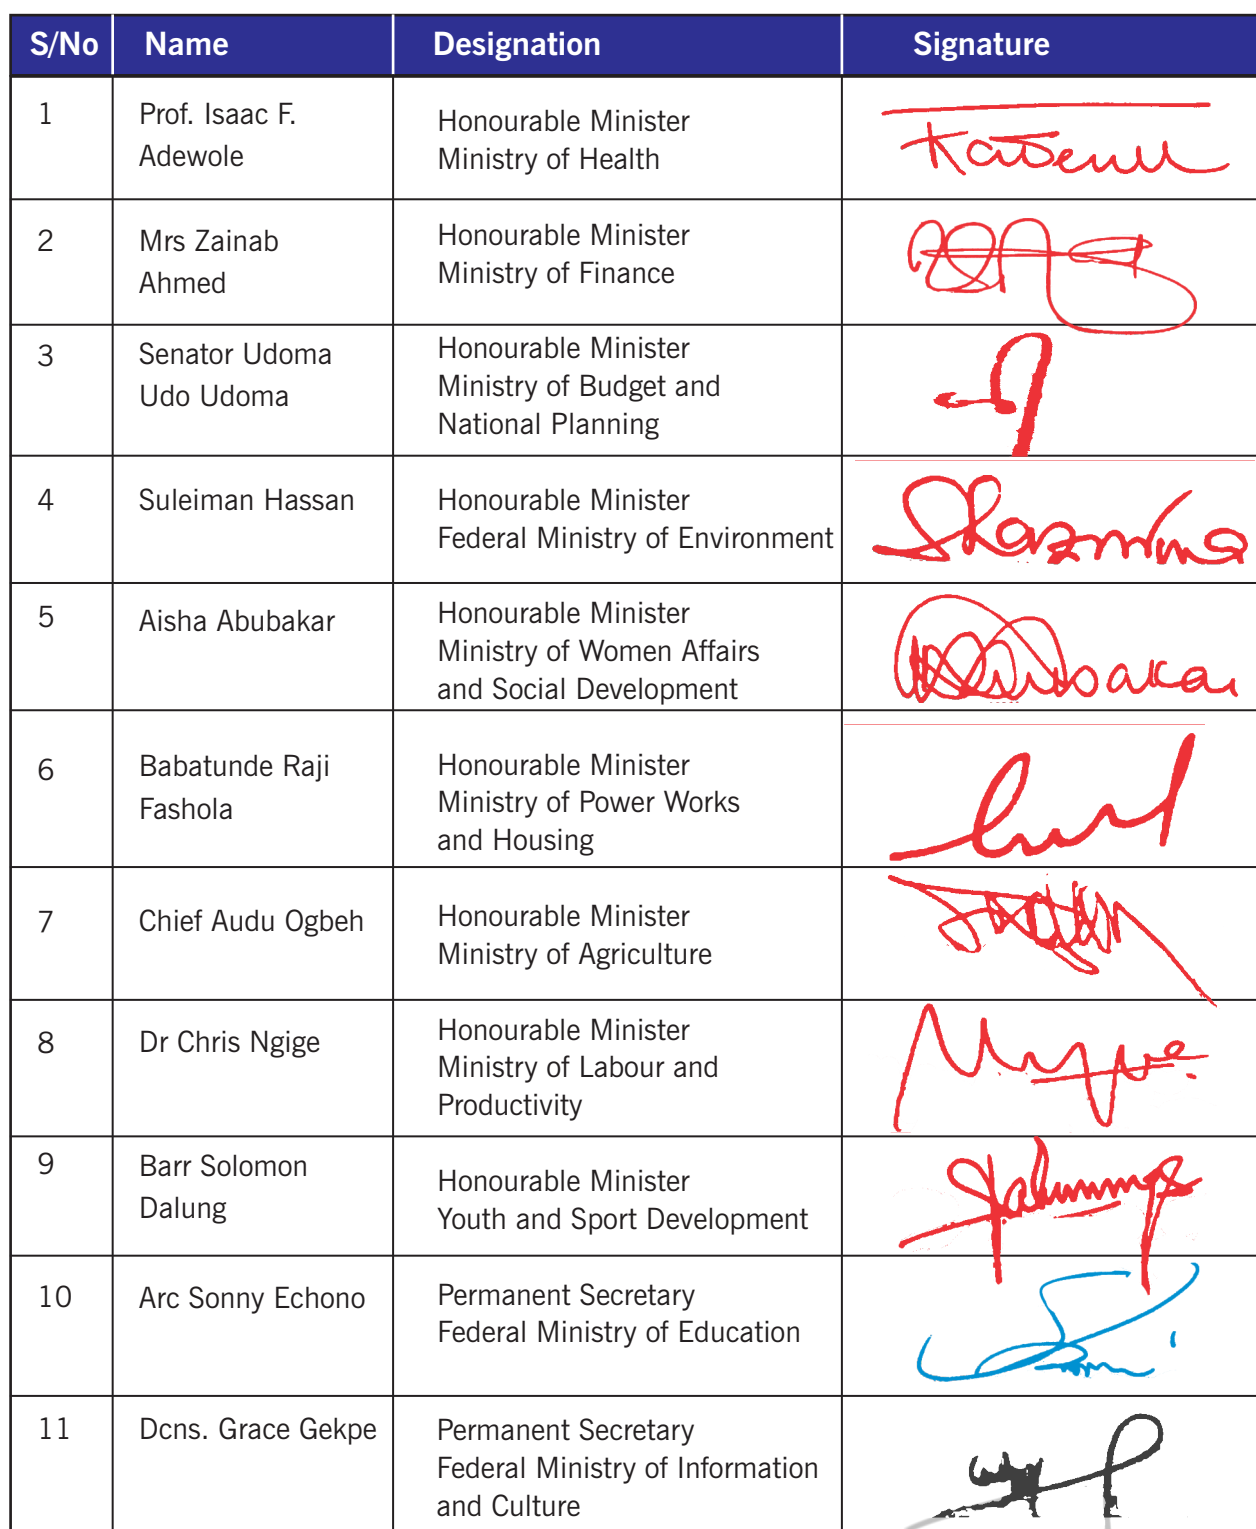 S/No Name Designation Signature
1 Prof. Isaac F. Adewole Honourable Minister
Ministry of Health
2 Mrs Zainab Ahmed Honourable Minister
Ministry of Finance
3 Senator Udoma Udo Udoma Honourable Minister
Ministry of Budget and
National Planning
4 Suleiman Hassan Honourable Minister
Federal Ministry of Environment
5 Aisha Abubakar Honourable Minister
Ministry of Women Affairs
and Social Development
6 Babatunde Raji Fashola Honourable Minister
Ministry of Power Works
and Housing
7 Chief Audu Ogbeh Honourable Minister
Ministry of Agriculture
8 Dr Chris Ngige Honourable Minister
Ministry of Labour and
Productivity
9 Barr Solomon Dalung Honourable Minister
Youth and Sport Development
10 Arc Sonny Echono Permanent Secretary
Federal Ministry of Education
11 Dcns. Grace Gekpe Permanent Secretary
Federal Ministry of Information
and Culture